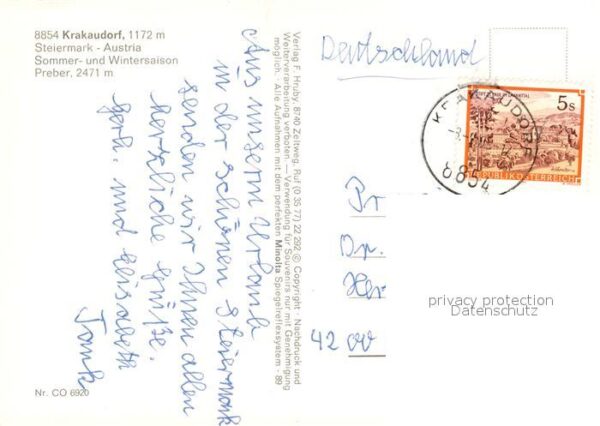 8854 Krakaudorf, 1172 m
Steiermark - Austria
Sommer- und Wintersaison
Preber, 2471 m
Aus unserm Urlaub
in der schönen Steiermark
senden wir Ihnen allen
herzliche Grüße.
Gerh. und Elisabeth
Nr. CO 6920
Verlag F. Hruby, 8740 Zeltweg, Ruf (0 35 77) 22 292 © Copyright · Nachdruck und
Weiterverarbeitung verboten. — Verwendung für Souvenirs nur mit Genehmigung
möglich. · Alle Aufnahmen mit dem perfekten Minolta Spiegelreflexsystem · 89
Deutschland
5s
REPUBLIK ÖSTERREICH
KRAKAUDORF
8854
Pr
Dr.
Her
42
privacy protection
Datenschutz